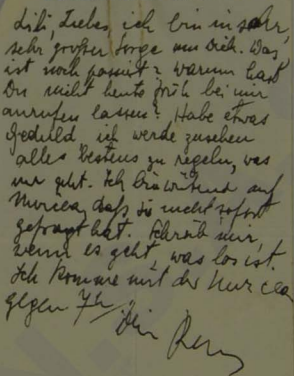 Lili, Liebes, ich bin in sehr,
sehr großer Sorge um Dich. Was
ist noch passiert? Warum hast
Du nicht heute früh bei mir
anrufen lassen? Habe etwas
Geduld. ich werde zusehen
alles bestens zu regeln, was
nur geht. Ich bin wütend auf
Mircea, daß er nicht sofort
gefragt hat. Schreib mir,
wenn es geht, was los ist.
Ich komme mit der Mircea
gegen 7h/
Dein